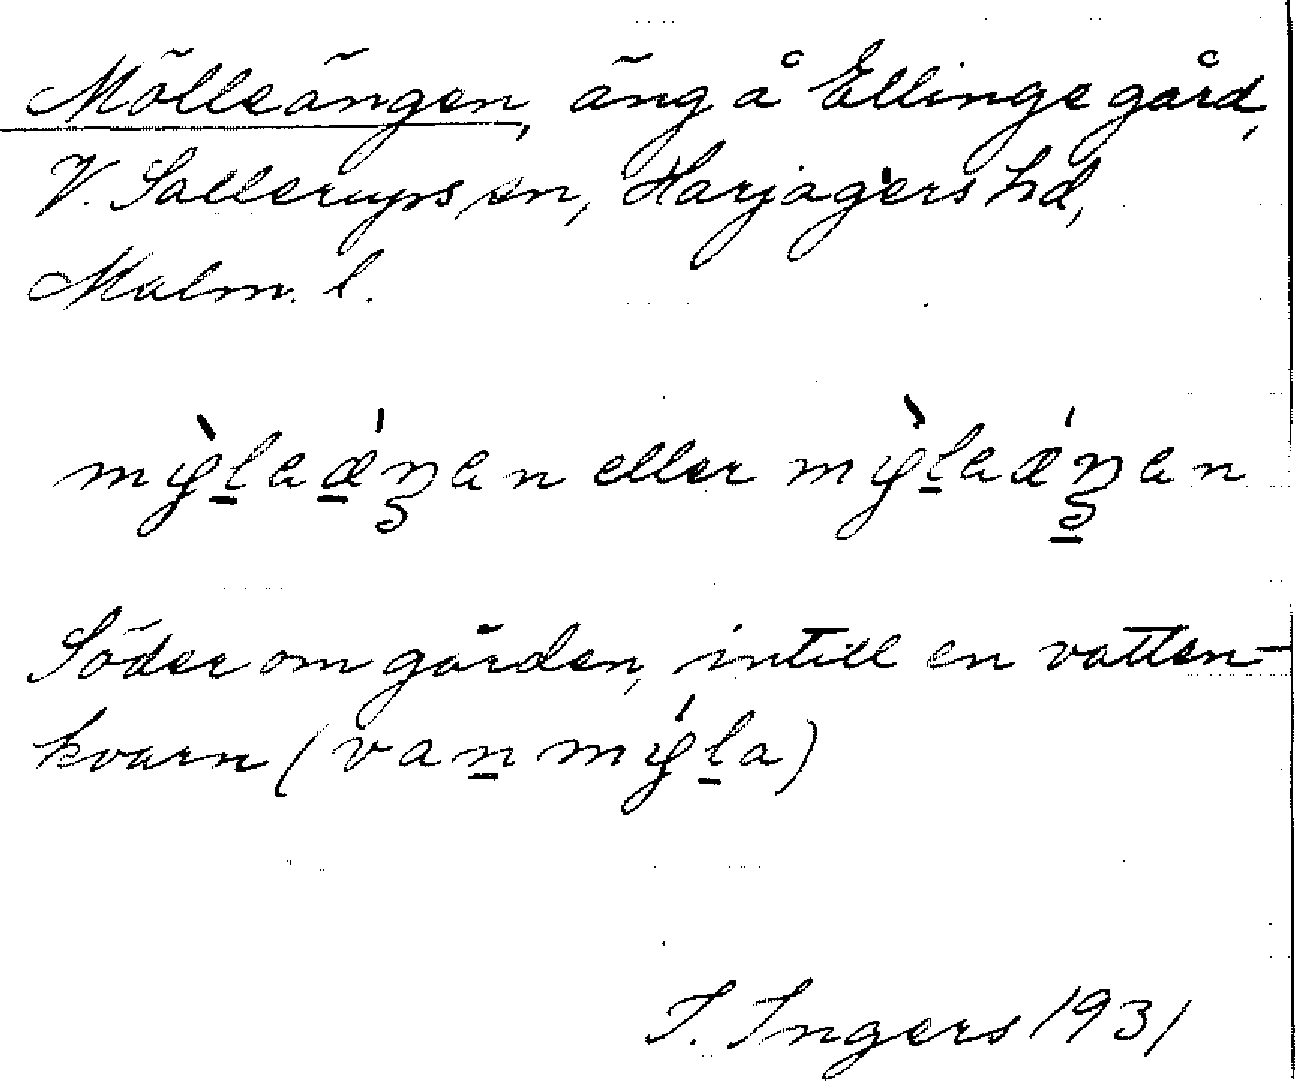 Mölleängen, äng å Ellinge gård,
V. Sallerups sn, Harjagers hd,
Malm. l.
mỳlaáŋan eller mỳlaáŋan
Söder om gården, intill en vatten-
kvarn (van mýla)
I. Ingers 1931